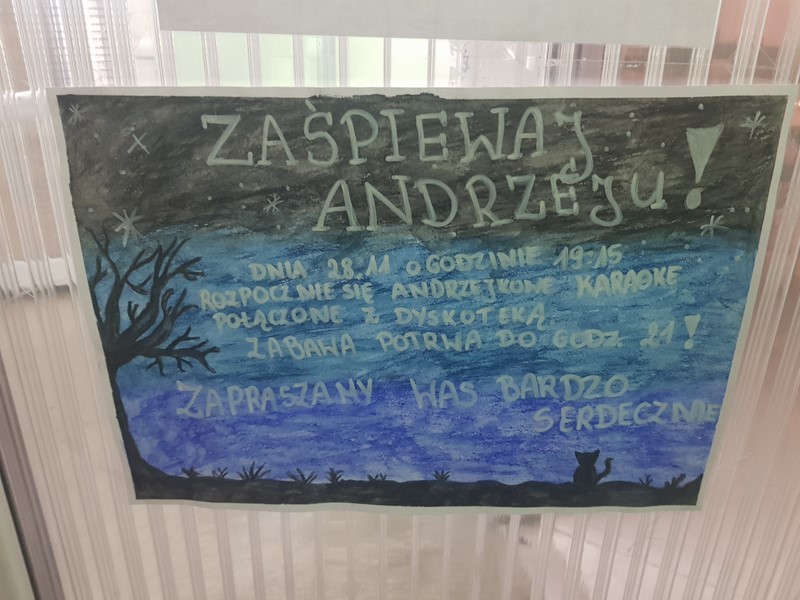 ZAŚPIEWAJ
ANDRZEJU!
DNIA 28.11 O GODZINIE 19:15
ROZPOCZNIE SIĘ ANDRZEJKOWE KARAOKE
POŁĄCZONE Z DYSKOTEKĄ.
ZABAWA POTRWA DO GODZ. 21!
ZAPRASZAMY WAS BARDZO
SERDECZNIE